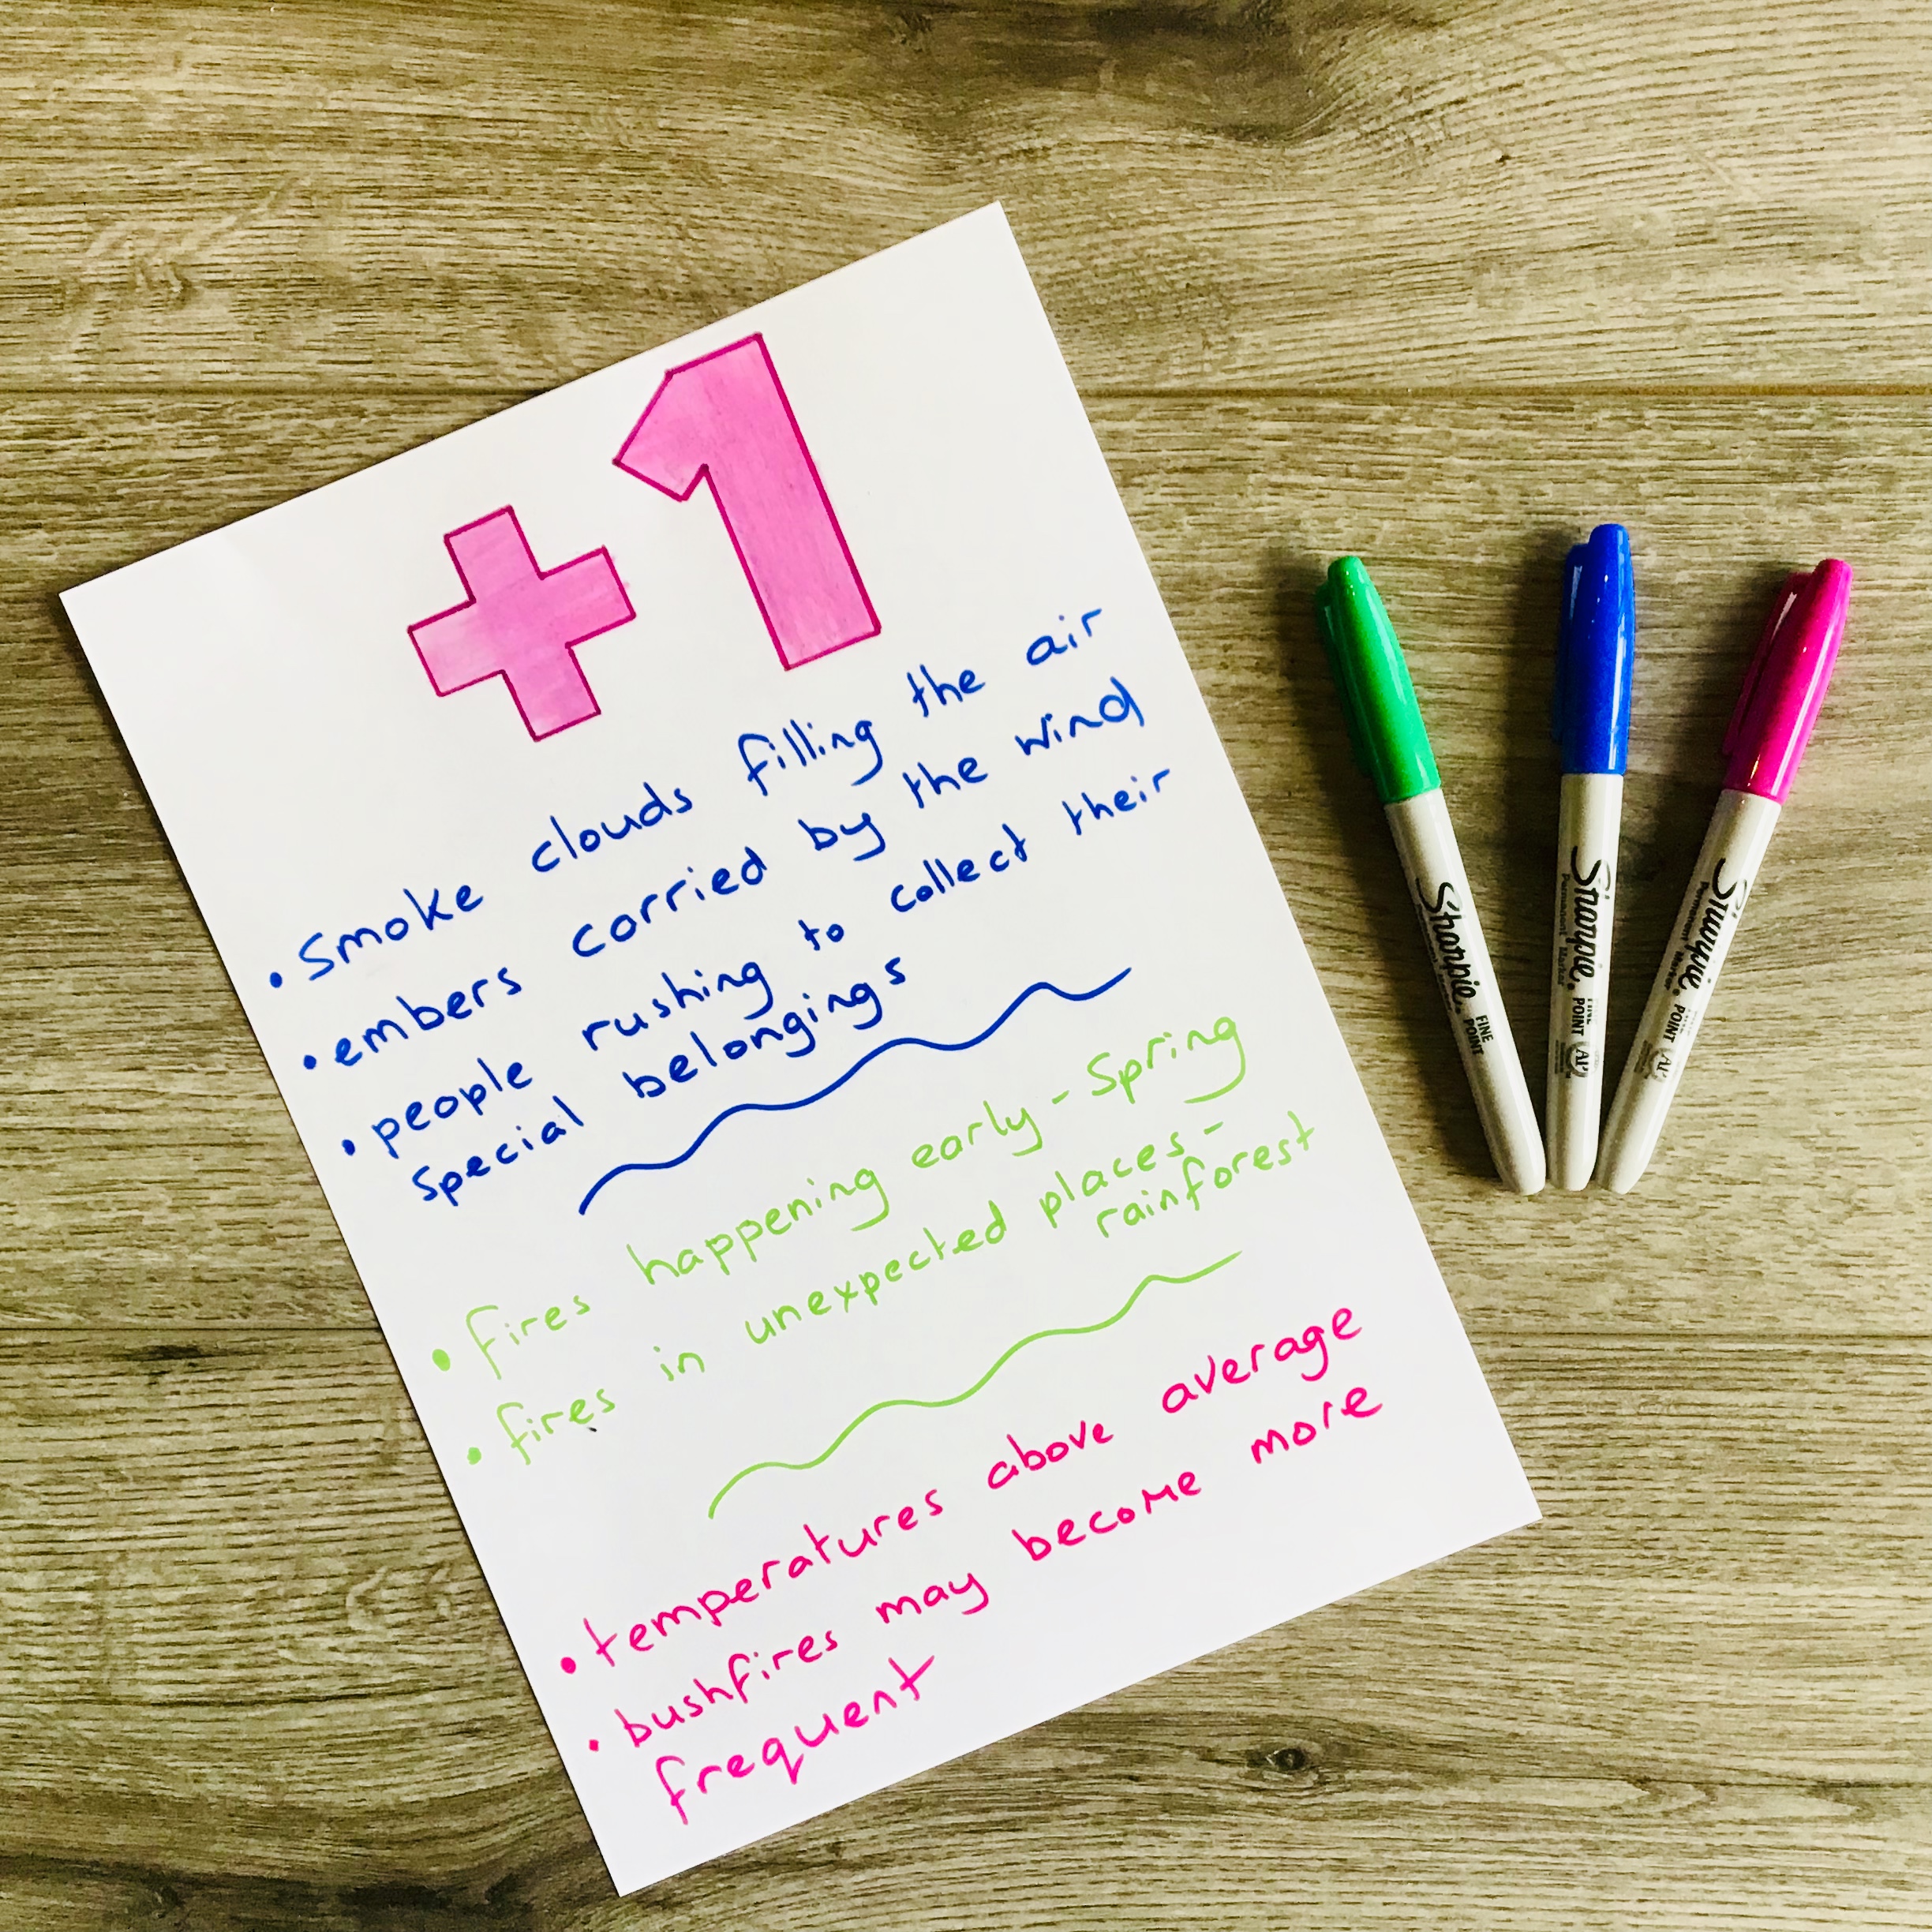 +1
• Smoke clouds filling the air
• embers carried by the wind
• people rushing to collect their
special belongings
• fires happening early - Spring
• fires in unexpected places -
rainforest
• temperatures above average
• bushfires may become more
frequent
Sharpie.
FINE
POINT
Sharpie.
Permanent Marker
FINE
POINT
AP
Sharpie.
Permanent Marker
POINT
AP